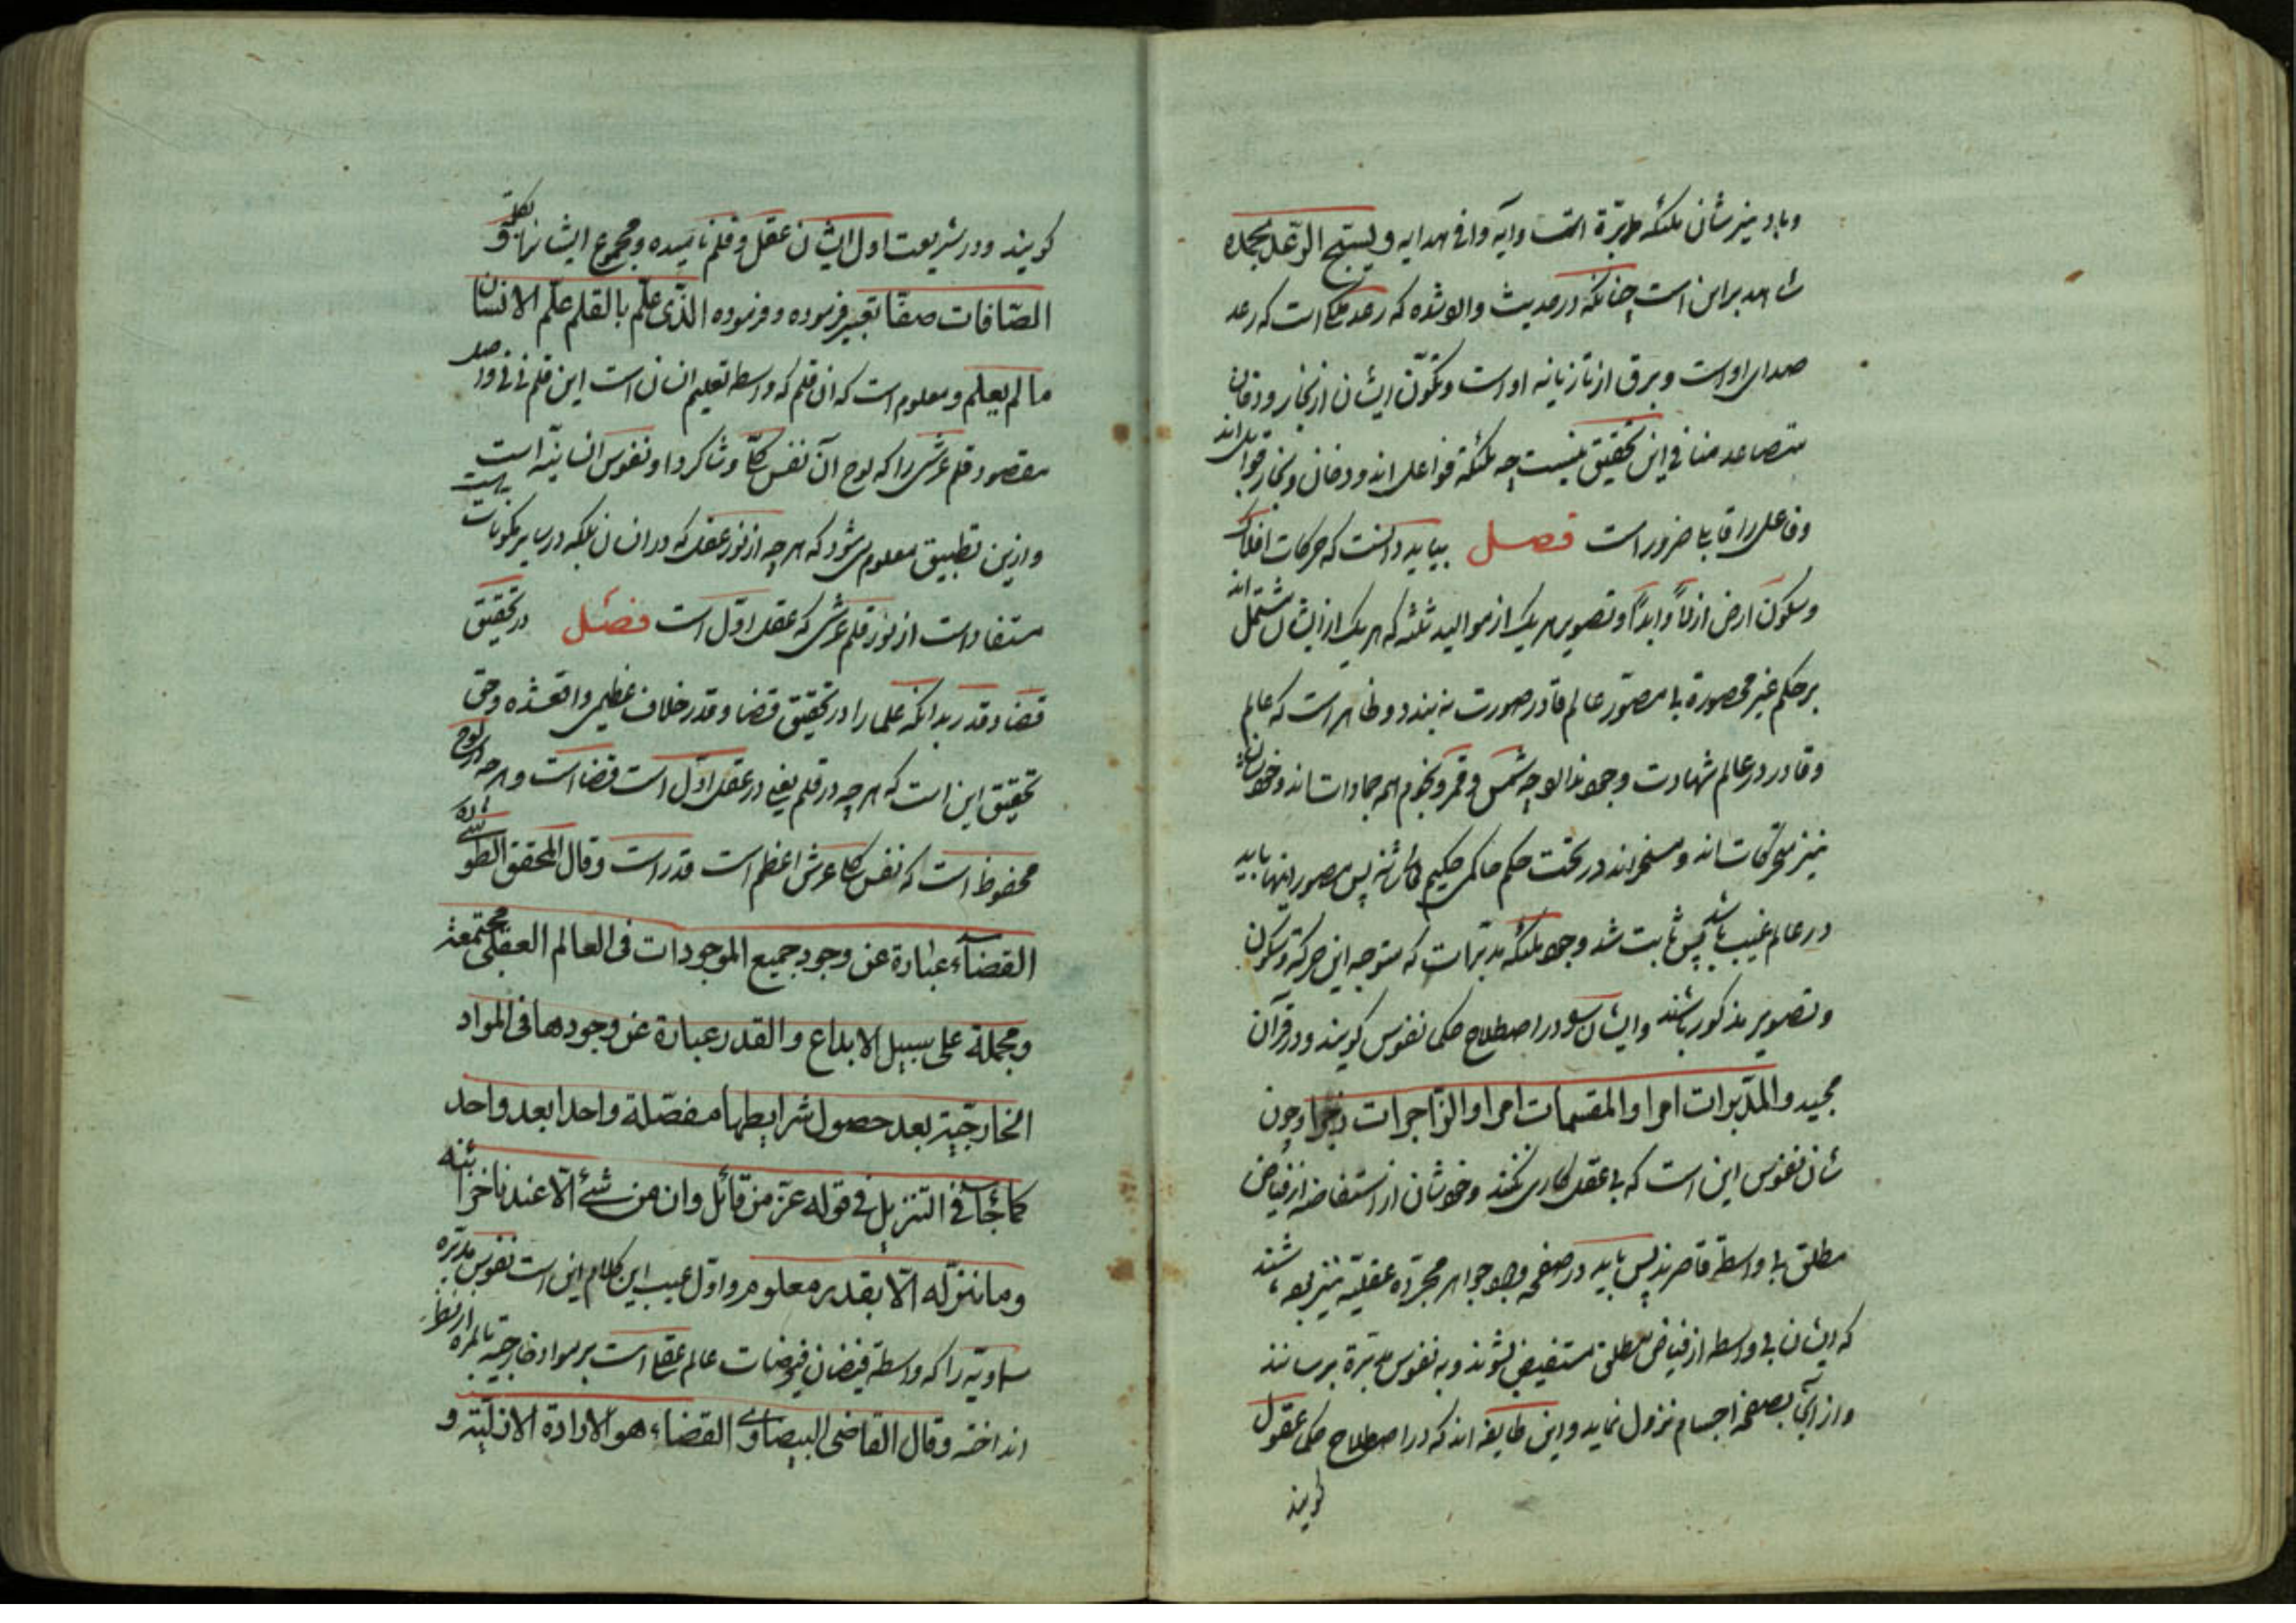 شاهد بر این است چنانکه در حدیث وارد شده که رعد ملکی است که رعد
صدای او است و برق از تازیانه او است و تکوّن ایشان از بخار و دخان
متصاعد منافی این تحقیق نیست چه ملئکة فواعل اند و دخان و بخار قوابل اند
و فاعل را قابل ضرور است فصل بباید دانست که حرکات افلاک
و سکون ارض ازلاً و ابداً و تصویر هر یک از موالید ثلثه که هر یک از ایشان مشتمل اند
بر حکم غیر محصورة بی مصوّر عالم قادر صورت نه بندد و ظاهر است که عالم
و قادر در عالم شهادت وجود ندارد چه شمس و قمر و نجوم همه جمادات اند
نیز متحرکات اند و مسخر اند در تحت حکم حاکمی حکیم پس مصور اینها باید
در عالم غیب باشد پس ثابت شد وجود ملئکه مدبرات که متوجه این حرکة و سکون
و تصویر مذکور باشند و ایشان را در اصطلاح حکما نفوس کویند و در قرآن
مجید والمدبّرات امرا والمقسمات امرا والزّاجرات زجرا و چون
شان نفوس این است که بی عقل کاری نکنند و خودشان از استفاضه از فیاض
مطلق بی واسطه قاصرند پس باید در صفحه وجود جواهر مجرّده عقلیّه نیز بوده باشند
که ایشان بی واسطه از فیاض مطلق مستفیض بشوند و به نفوس مدبّرة برسانند
و از آنجا بصفحه اجسام نزول نماید و این طایفه اند که در اصطلاح حکما عقول
کویند
کویند و در شریعت اول ایشان عقل و قلم نامیده و مجموع ایشانرا
الصّافات صفّا تعبیر فرموده و فرموده الّذی علّم بالقلم علّم الانسان
ما لم یعلم و معلوم است که آن قلم که واسطه تعلیم انسان است این قلم نی نی و در اصل
مقصود قلم عرشی را که لوح آن نفس کل و شاکرد او نفوس انسانیّه است
و ازین تطبیق معلوم می شود که هر چه از نور عقل که در انسان بلکه در سایر مکونات است
مستفاد است از نور قلم عرشی که عقل اوّل است فصل در تحقیق
قضا و قدر بدانکه علما را در تحقیق قضا و قدر خلاف عظیمی واقع شده و حق
تحقیق این است که هر چه در قلم یعنی در عقل اوّل است قضا است و هر چه در لوح
محفوظ است که نفس کل عرش اعظم است قدر است و قال المحقق الطوسی
القضاء عبارة عن وجود جمیع الموجودات فی العالم العقلی مجتمعة
و مجملة علی سبیل الابداع والقدر عبارة عن وجودها فی المواد
الخارجیّة بعد حصول شرایطها مفصّلة واحدا بعد واحد
کما جاء فی التنزیل فی قوله عزّ من قائل وان من شئ الّا عندنا خزائنه
وما ننزّله الّا بقدر معلوم و اوّل عیب این کلام این است نفوس مدبّره
سماویّه را که واسطه فیضان فیوضات عالم عقل است بر مواد خارجیّه بالمره از نظر
انداخته و قال القاضی البیضاوی القضاء هو الارادة الازلیّة و